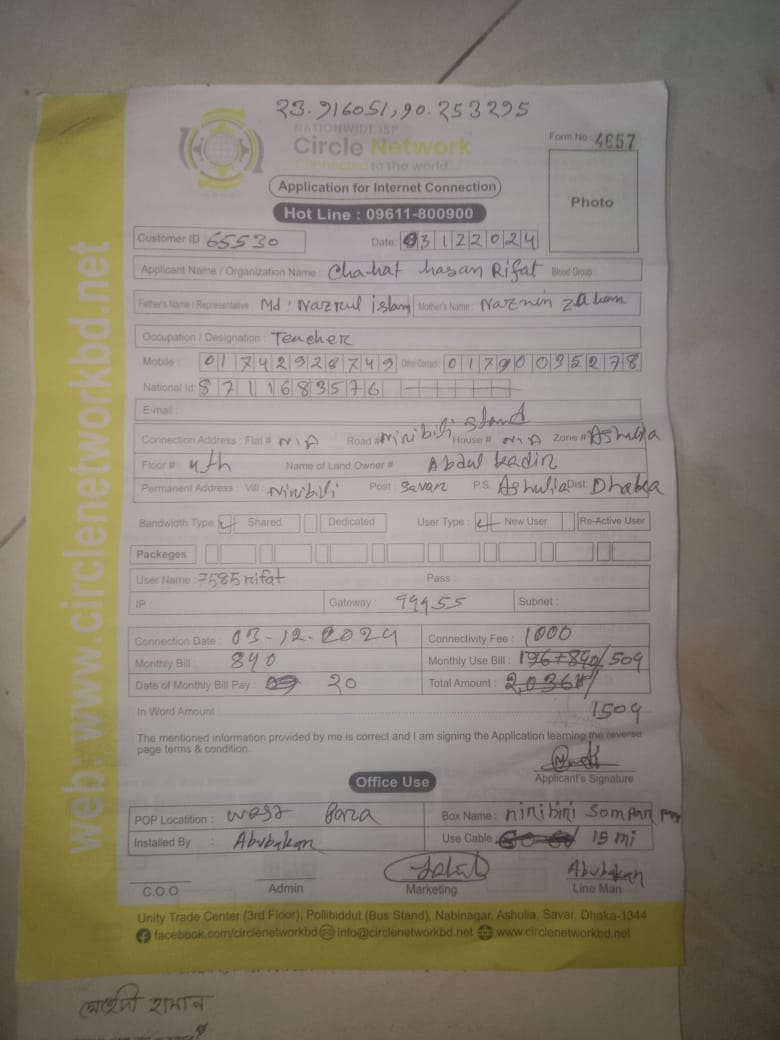 23.916051,90.253295
NATIONWIDE ISP
Circle Network
Connected to the world...
Form No : 4657
Application for Internet Connection
Photo
Hot Line : 09611-800900
Customer ID 65530 Date: 03122024
Applicant Name / Organization Name : Chahat hasan Rifat Blood Group
Father's Name / Representative Md : Nazrul islam Mother's Name : Naznin
Occupation / Designation : Teacher
Mobile : 01742928749 Other Contact : 01790035278
National Id: 8711683576
E-mail :
Connection Address : Flat # N/A Road # Niribili Stand House # N/A Zone # Ashulia
Floor # 4th Name of Land Owner # Abdul kadir
Permanent Address : Vill : Niribili Post : Savar P.S. Ashulia Dist: Dhaka
Bandwidth Type Shared Dedicated User Type : New User Re-Active User
Packeges
User Name : 7585rifat Pass :
IP : Gateway : 99955 Subnet :
Connection Date : 03-12-2024 Connectivity Fee : 1000
Monthly Bill : 890 Monthly Use Bill : 196+890/509
Date of Monthly Bill Pay : 20 Total Amount : 2,036
In Word Amount 1509
The mentioned information provided by me is correct and I am signing the Application learning the reverse
page terms & condition.
Applicant's Signature
Office Use
POP Locatition : west Para Box Name : niribiri
Installed By : Abubakar Use Cable 15 mi
Abubakar
C.O.O Admin Marketing Line Man
Unity Trade Center (3rd Floor), Pollibiddut (Bus Stand), Nabinagar, Ashulia, Savar, Dhaka-1344
facebook.com/circlenetworkbd info@circlenetworkbd.net www.circlenetworkbd.net
web: www.circlenetworkbd.net